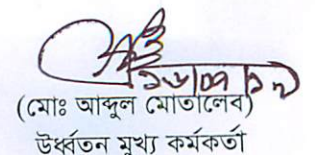 (মোঃ আব্দুল মোতালেব)
উর্ধ্বতন মূখ্য কর্মকর্তা